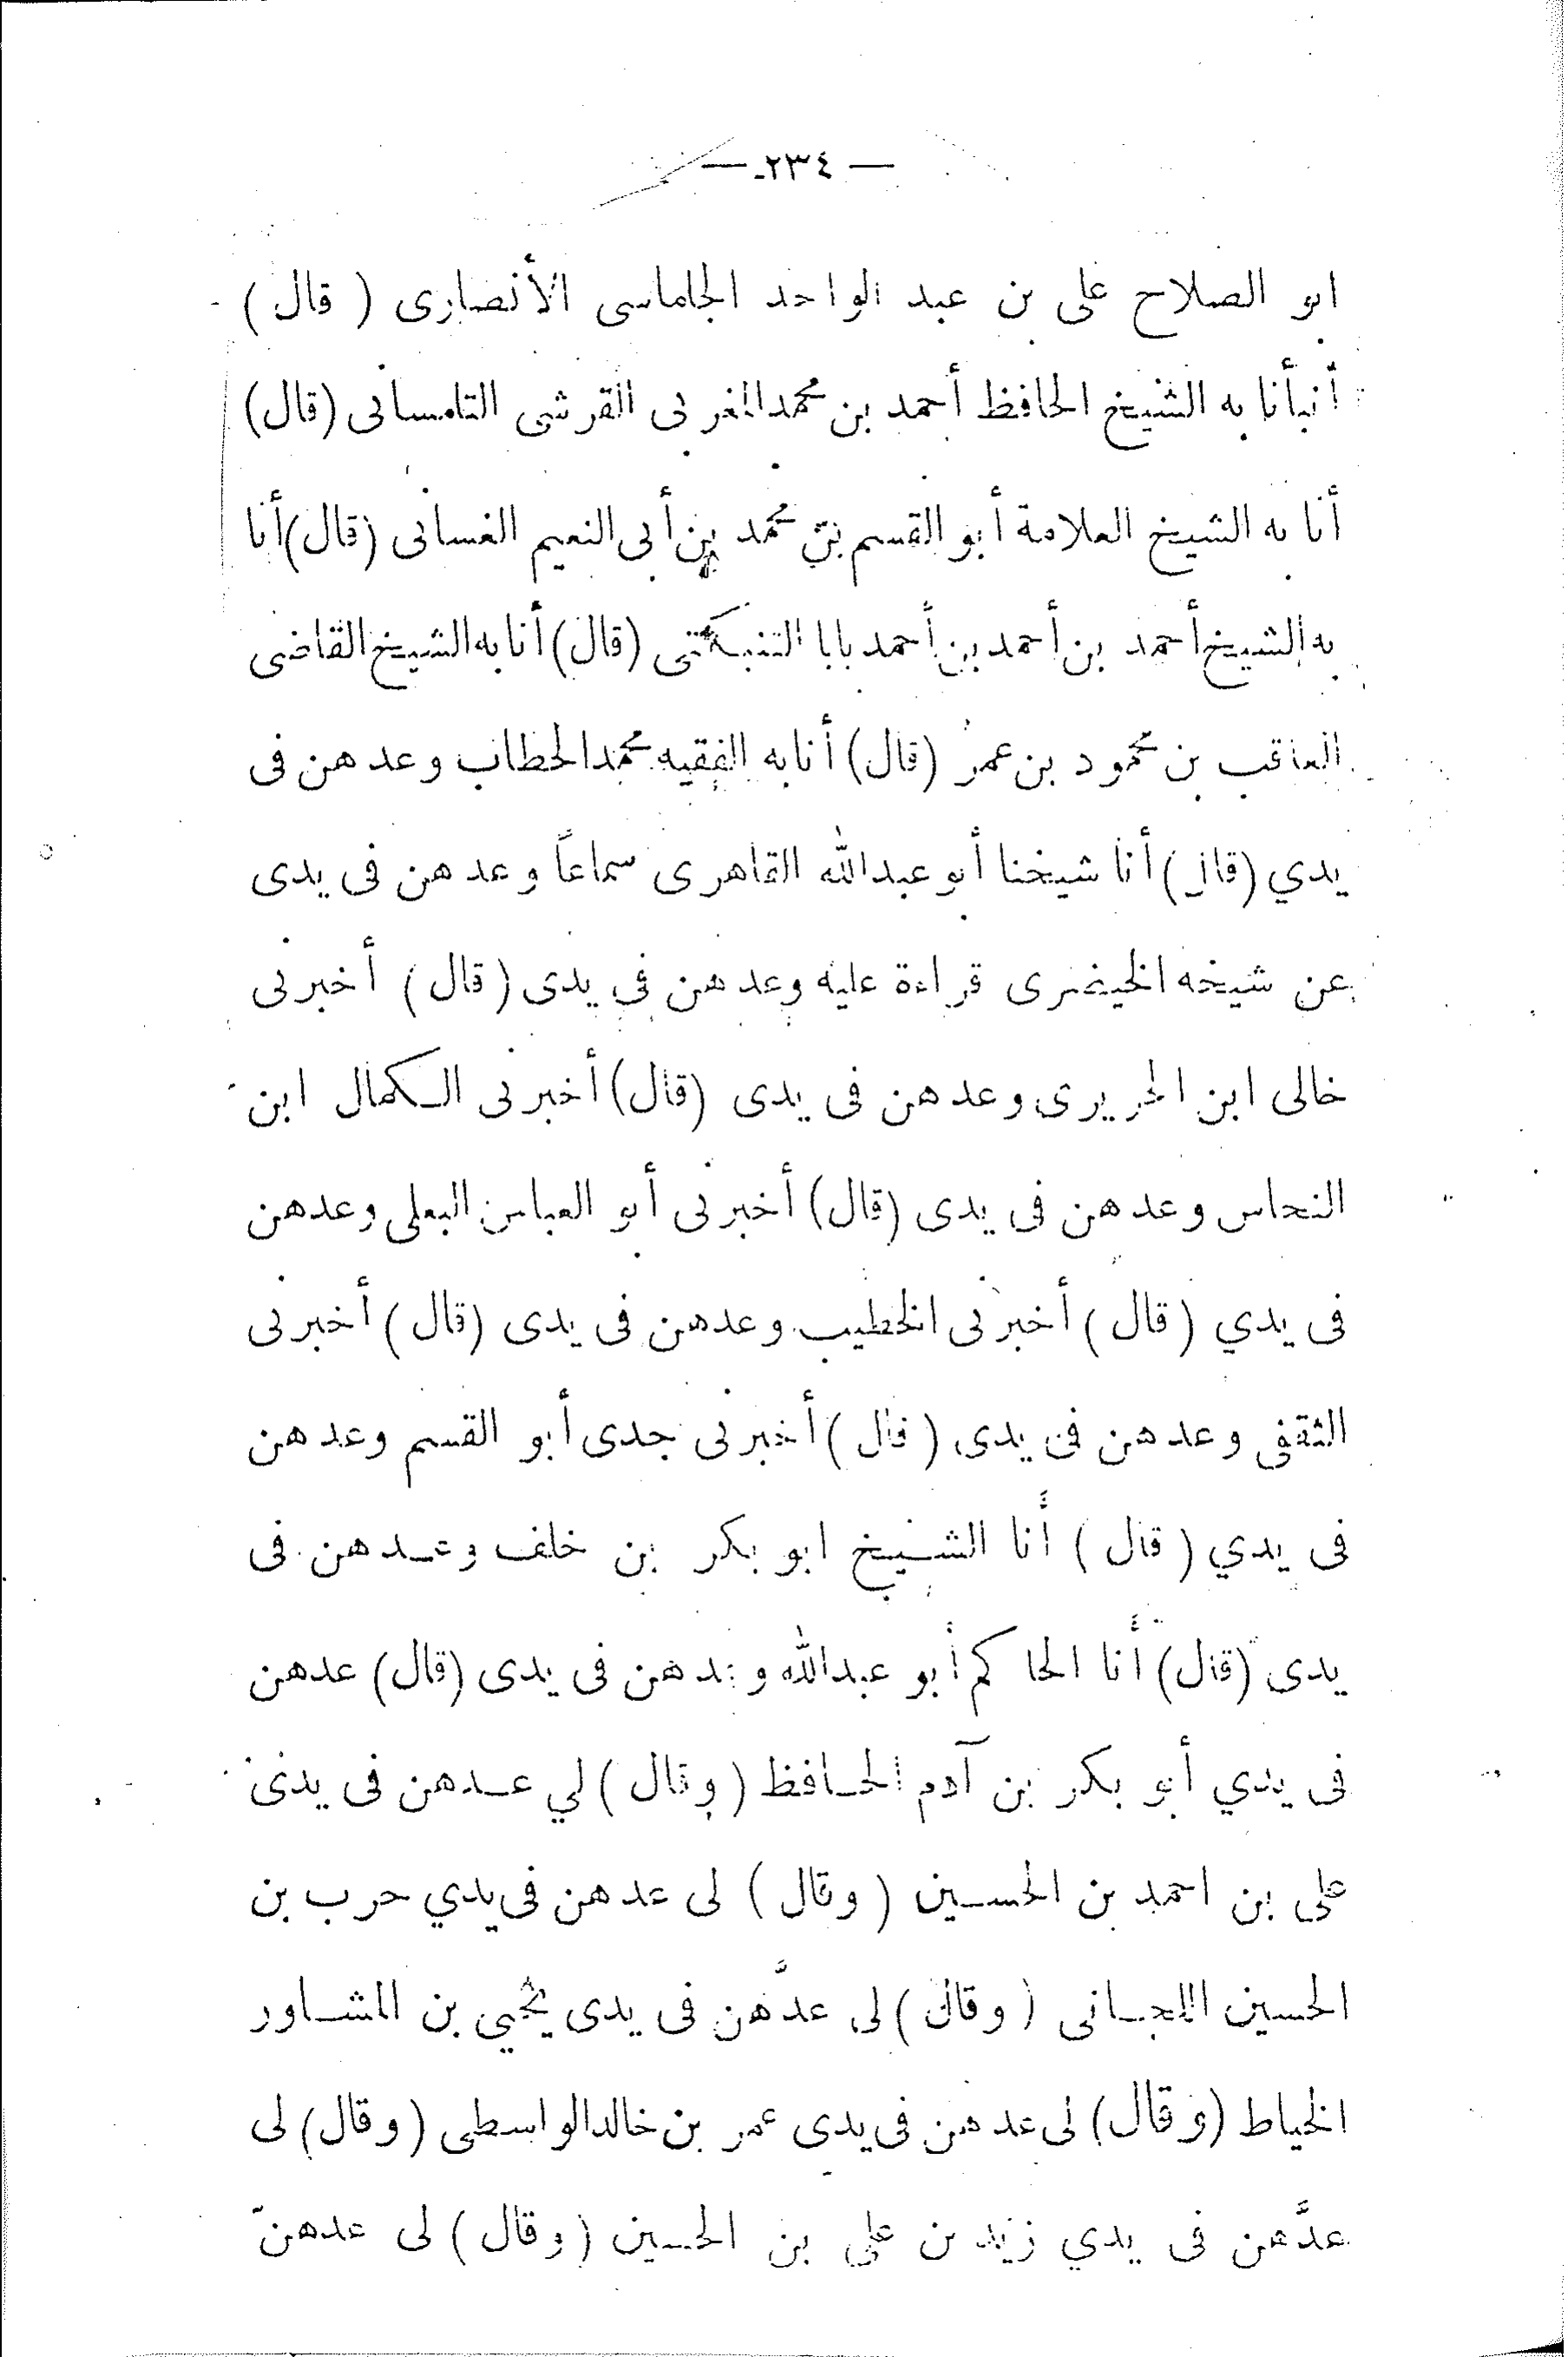 — ٢٣٤ —
ابو الصلاح على بن عبد الواحد الجاماسى الأنصارى ( قال )
أنبأنا به الشيخ الحافظ أحمد بن محمد المغربى القرشى التلمسانى (قال)
أنا به الشيخ العلامة أبو القسم بن محمد بن أبى النعيم الغسانى (قال) أنا
به الشيخ أحمد بن أحمد بن أحمد بابا التنبكتى (قال) أنا به الشيخ القاضى
العاقب بن محمود بن عمر (قال) أنا به الفقيه محمد الحطاب وعدهن فى
يدي (قال) أنا شيخنا أبو عبد الله القاهرى سماعاً وعدهن فى يدى
عن شيخه الخيضرى قراءة عليه وعدهن فى يدى (قال) أخبرنى
خالى ابن الحريرى وعدهن فى يدى (قال) أخبرنى الكمال ابن
النحاس وعدهن فى يدى (قال) أخبرنى أبو العباس البعلى وعدهن
فى يدي (قال) أخبرنى الخطيب وعدهن فى يدى (قال) أخبرنى
الثقفى وعدهن فى يدى (قال) أخبرنى جدى أبو القسم وعدهن
فى يدي (قال) أنا الشيخ ابو بكر بن خلف وعدهن فى
يدى (قال) أنا الحاكم أبو عبد الله وعدهن فى يدى (قال) عدهن
فى يدي أبو بكر بن آدم الحافظ (وقال) لي عدهن فى يدى
على بن احمد بن الحسين (وقال) لى عدهن فى يدي حرب بن
الحسين اللحانى (وقال) لى عدَّهن فى يدى يحيي بن المشاور
الخياط (وقال) لى عدهن فى يدى عمر بن خالد الواسطى (وقال) لى
عدَّهن فى يدي زيد بن على بن الحسين (وقال) لى عدهنّ